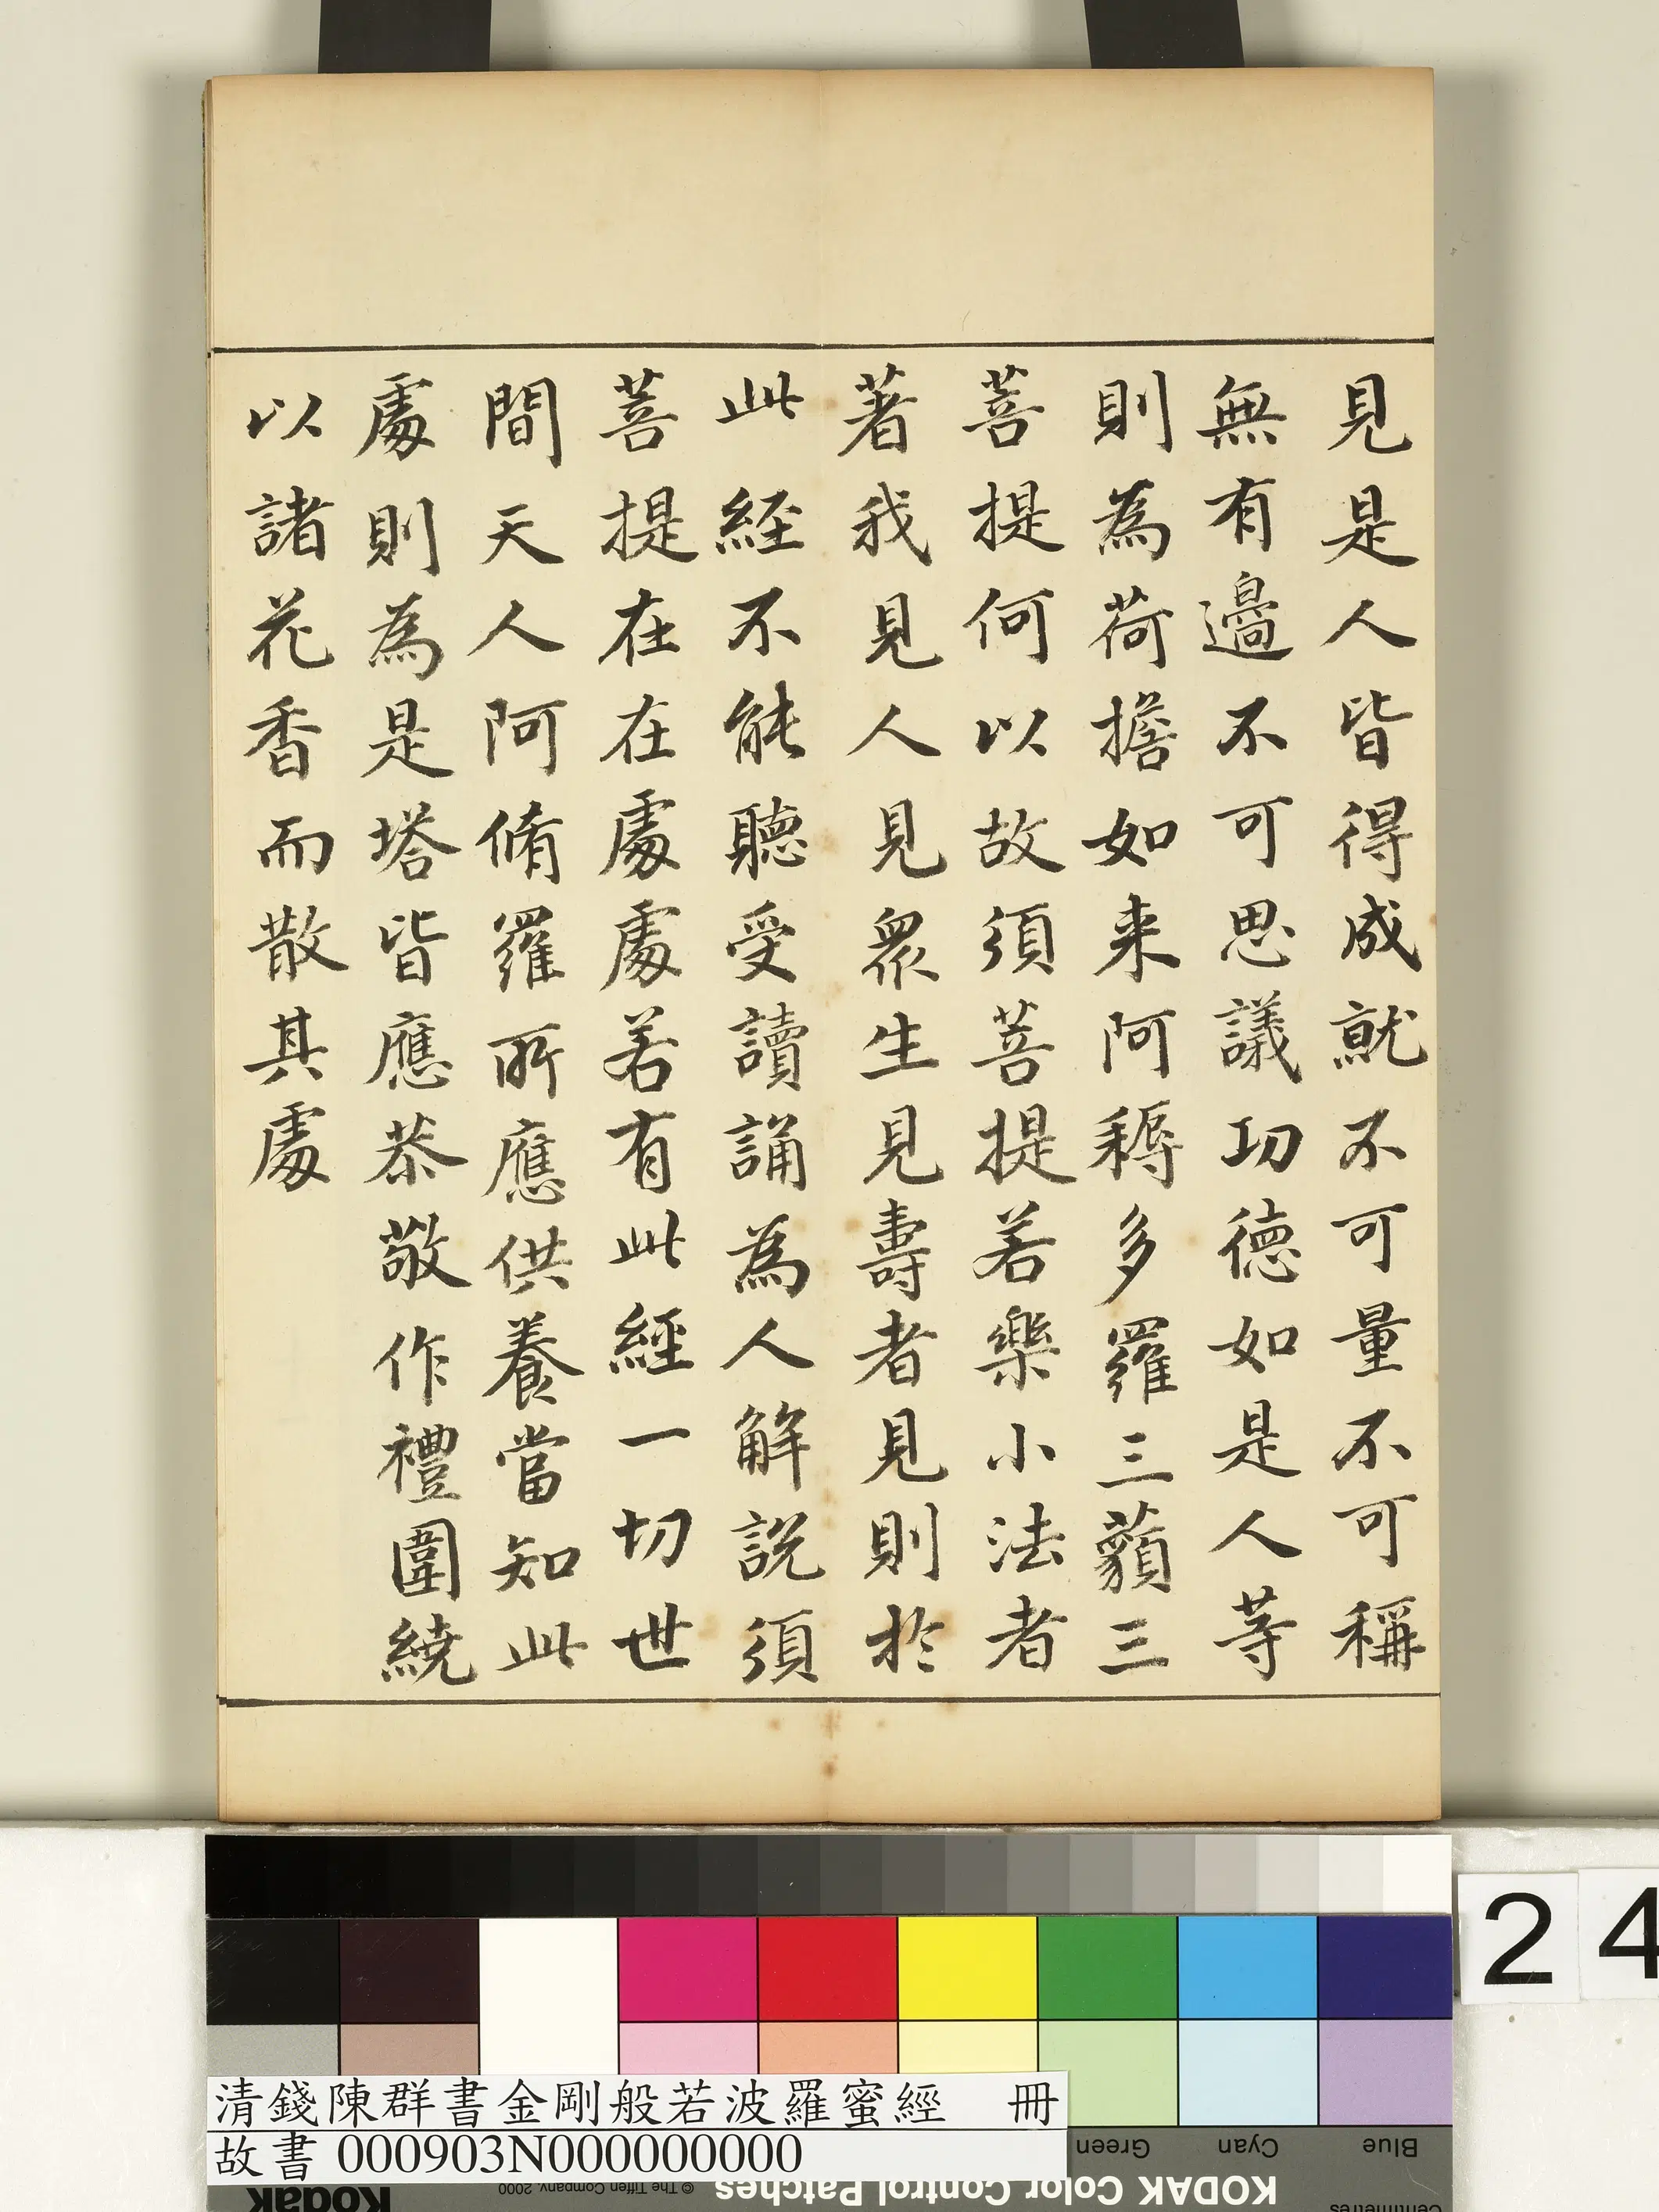 見是人皆得成就不可量不可稱
無有邊不可思議功德如是人等
則為荷擔如来阿耨多羅三藐三
菩提何以故須菩提若樂小法者
著我見人見眾生見壽者見則於
此經不能聽受讀誦為人解說須
菩提在在處處若有此經一切世
間天人阿脩羅所應供養當知此
處則為是塔皆應恭敬作禮圍繞
以諸花香而散其處
24
清錢陳群書金剛般若波羅蜜經 冊
故書 000903N000000000
Green
Cyan
Blue
KODAK Color Control Patches
© The Tiffen Company, 2000
Kodak
Centimetres